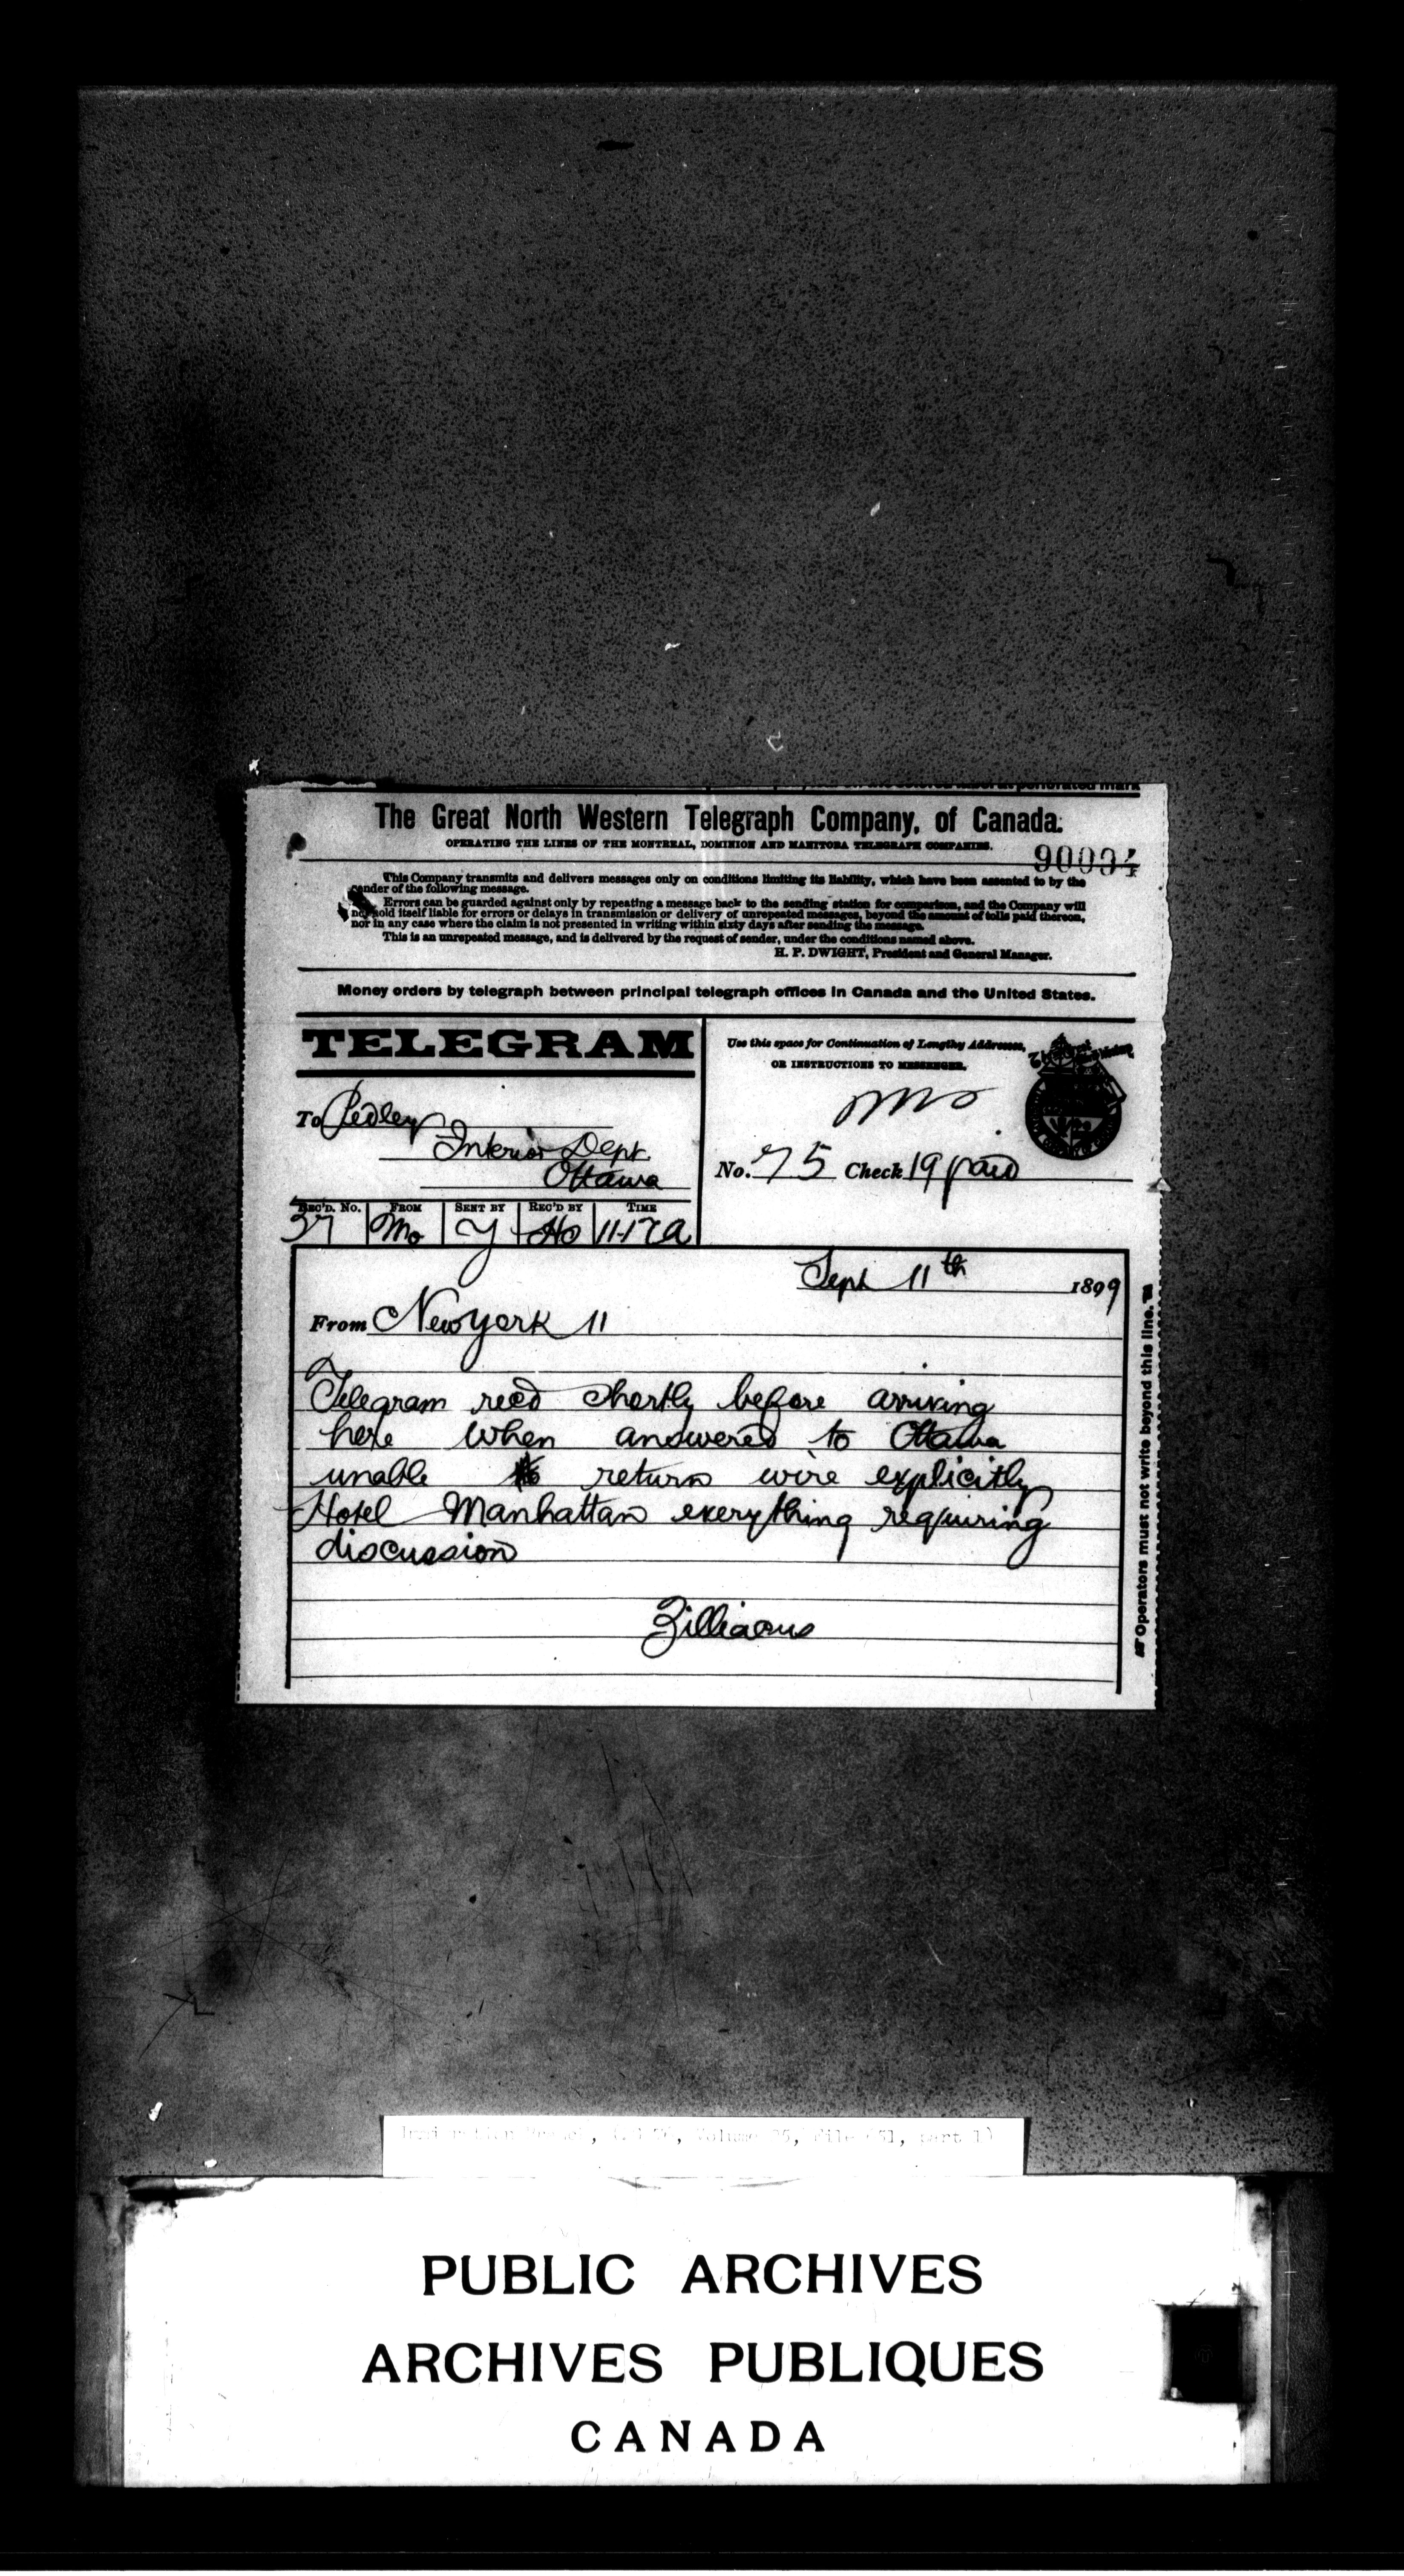 The Great North Western Telegraph Company, of Canada.
OPERATING THE LINES OF THE MONTREAL, DOMINION AND MANITOBA TELEGRAPH COMPANIES.
90094
This Company transmits and delivers messages only on conditions limiting its liability, which have been assented to by the
sender of the following message.
Errors can be guarded against only by repeating a message back to the sending station for comparison, and the Company will
not hold itself liable for errors or delays in transmission or delivery of unrepeated messages, beyond the amount of tolls paid thereon,
nor in any case where the claim is not presented in writing within sixty days after sending the message.
This is an unrepeated message, and is delivered by the request of sender, under the conditions named above.
H. P. DWIGHT, President and General Manager.
Money orders by telegraph between principal telegraph offices in Canada and the United States.
TELEGRAM
Use this space for Continuation of Lengthy Addresses,
OR INSTRUCTIONS TO MESSENGER.
To Pedley
Interior Dept
Ottawa
No. 75 Check 19 paid
REC'D. No. FROM SENT BY REC'D BY TIME
37 Mo Y Ho 11-17a
Sept 11th 1899
From Newyork 11
Telegram recd shortly before arriving
here when answered to Ottawa
unable to return wire explicitly
Hotel Manhattan everything requiring
discussion
Zilliacus
Operators must not write beyond this line.
PUBLIC ARCHIVES
ARCHIVES PUBLIQUES
CANADA